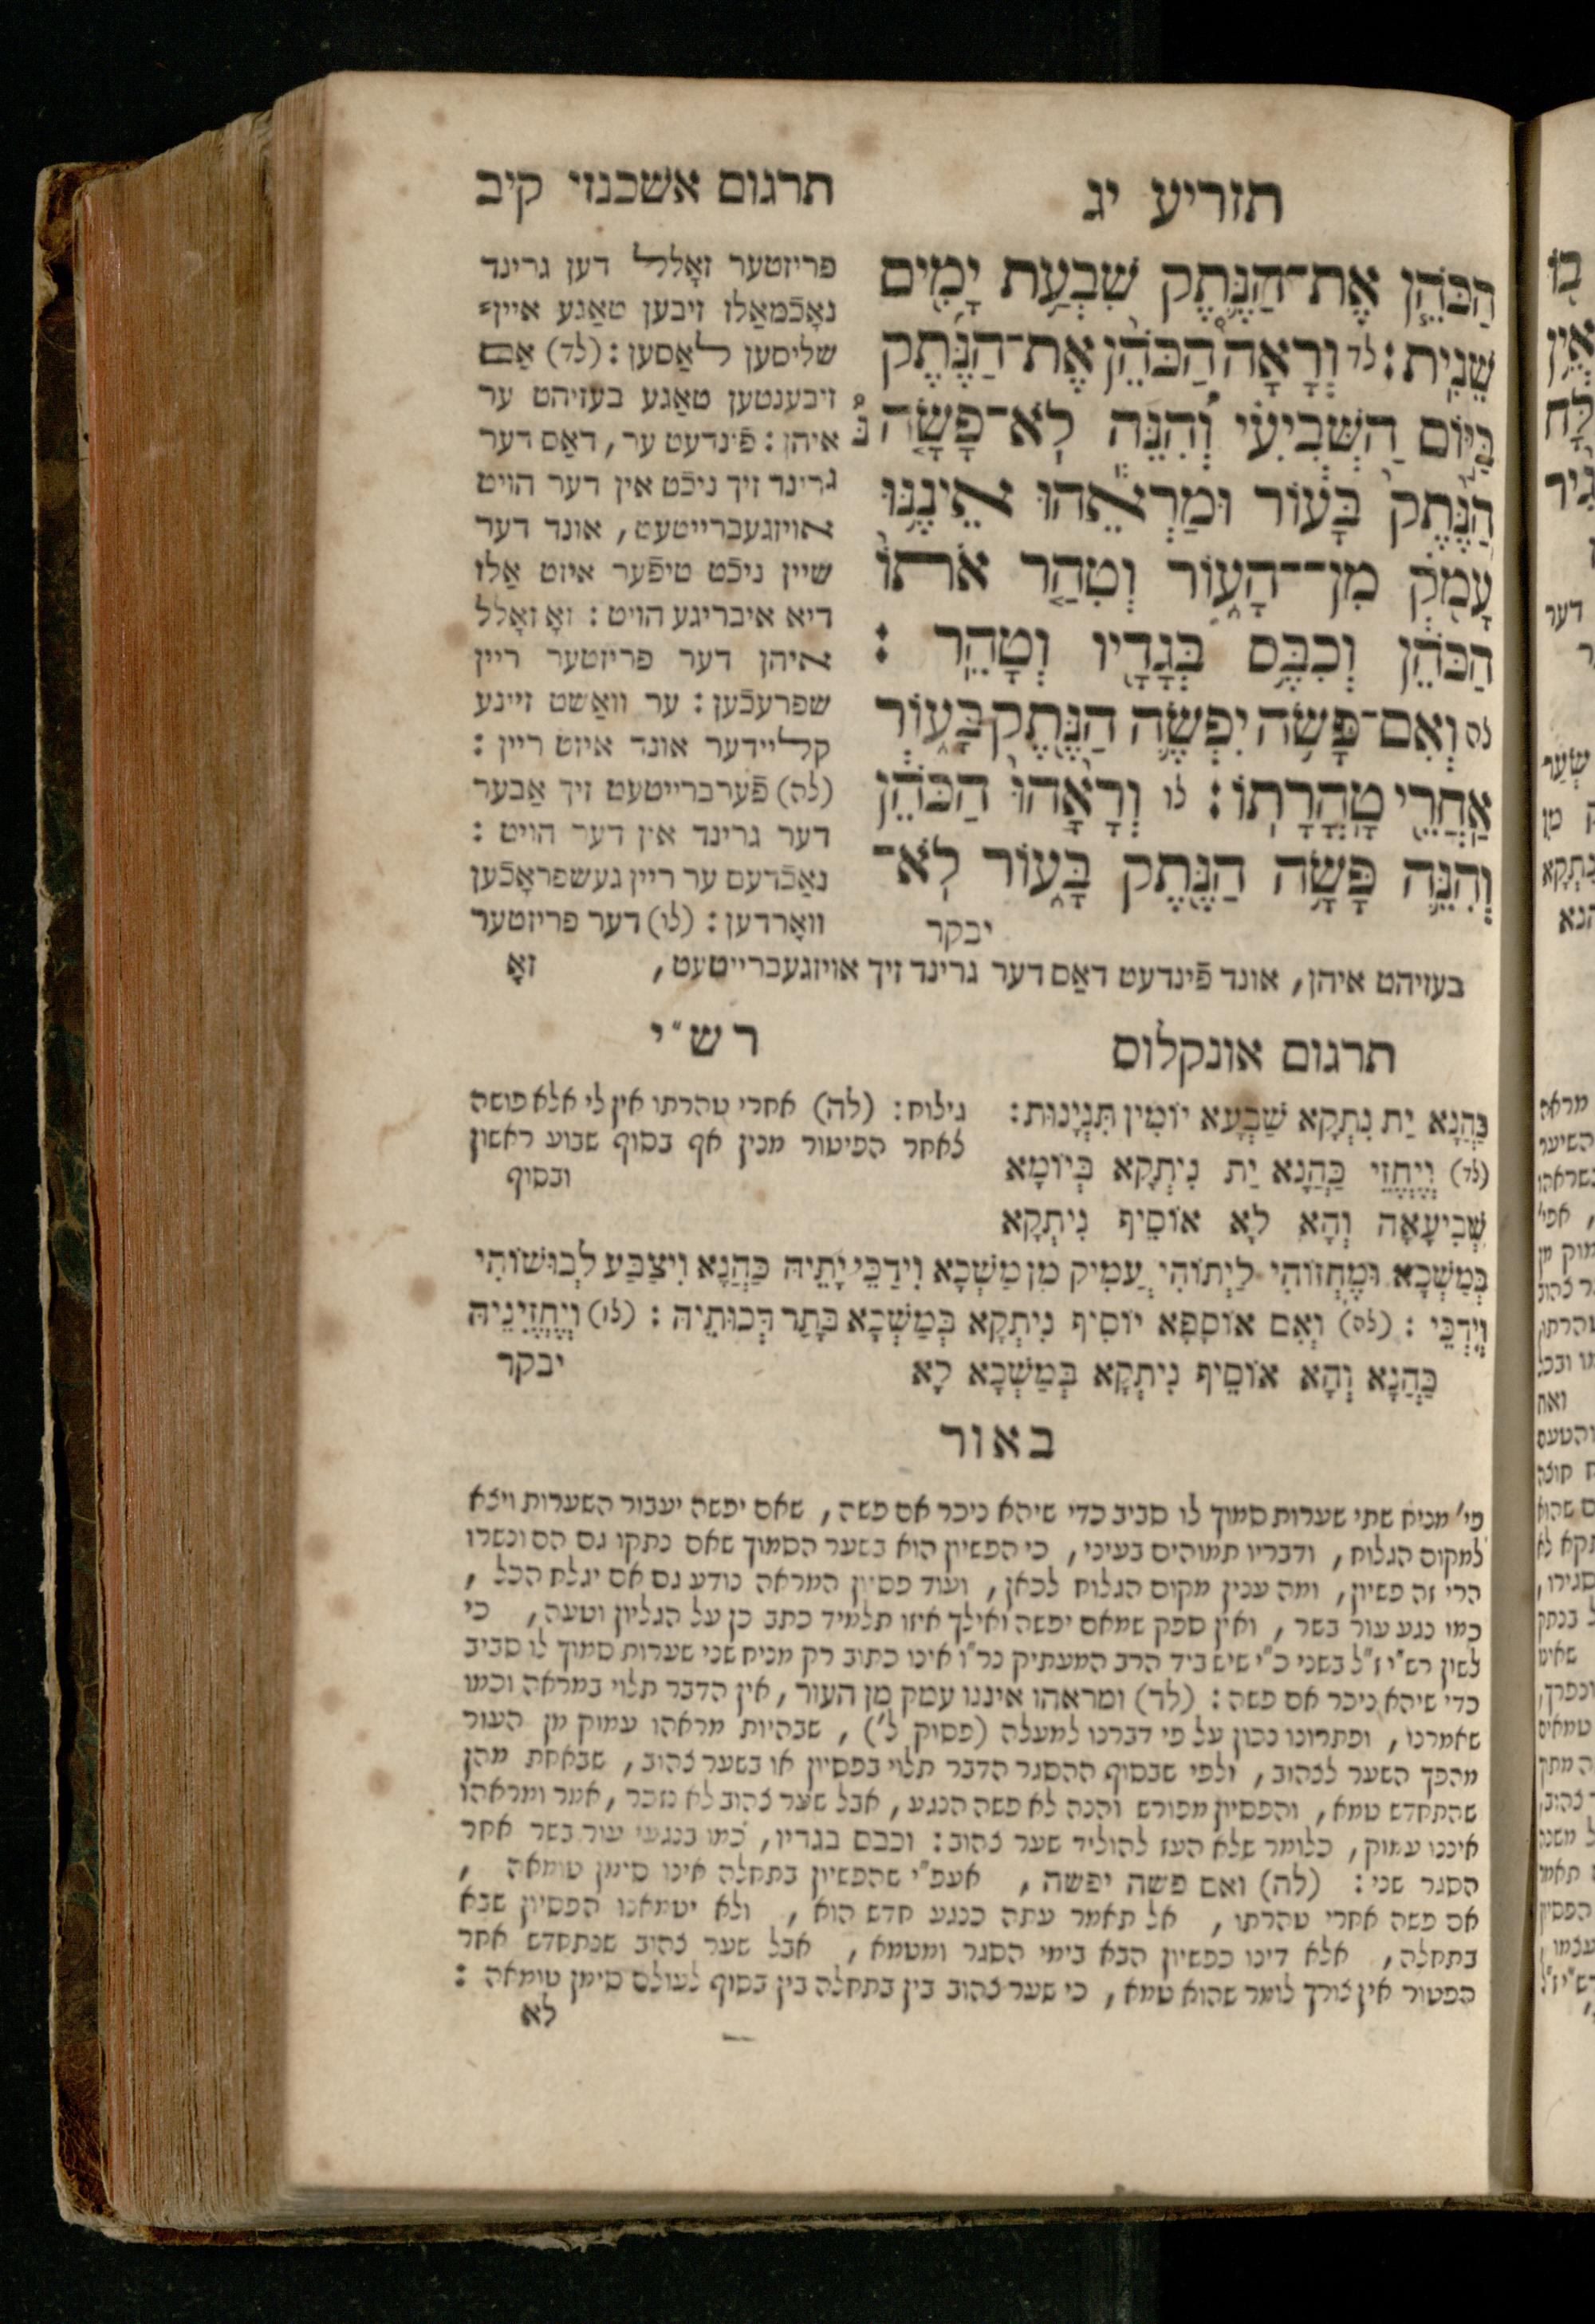 תזריע יג
תרגום אשכנזי קיב
הַכֹּהֵ֧ן אֶת־הַנֶּ֛תֶק שִׁבְעַ֥ת יָמִ֖ים
שֵׁנִֽית: לד וְרָאָה֩ הַכֹּהֵ֨ן אֶת־הַנֶּ֜תֶק
בַּיּ֣וֹם הַשְּׁבִיעִ֗י וְ֠הִנֵּה לֹֽא־פָשָׂ֤ה
הַנֶּ֙תֶק֙ בָּע֔וֹר וּמַרְאֵ֕הוּ אֵינֶ֥נּוּ
עָמֹ֖ק מִן־הָע֑וֹר וְטִהַ֤ר אֹתוֹ֙
הַכֹּהֵ֔ן וְכִבֶּ֥ס בְּגָדָ֖יו וְטָהֵֽר :
לה וְאִם־פָּשֹׂ֥ה יִפְשֶׂ֛ה הַנֶּ֖תֶק בָּע֑וֹר
אַחֲרֵ֖י טָהֳרָתֽוֹ: לו וְרָאָ֙הוּ֙ הַכֹּהֵ֔ן
וְהִנֵּ֛ה פָּשָׂ֥ה הַנֶּ֖תֶק בָּע֑וֹר לֹֽא־
יבקר
פריזטער זאָלל דען גרינד
נאָכֿמאַלז זיבען טאַגע איין־
שליסען לאַסען: (לד) אַם
זיבענטען טאַגע בעזיהט ער
איהן: פֿינדעט ער, דאַס דער
גרינד זיך ניכֿט אין דער הויט
אויזגעברייטעט, אונד דער
שיין ניכֿט טיפֿער איזט אַלז
דיא איבריגע הויט: זאָ זאָלל
איהן דער פריזטער ריין
שפרעכֿען: ער וואַשט זיינע
קליידער אונד איזט ריין:
(לה) פֿערברייטעט זיך אַבער
דער גרינד אין דער הויט:
נאַכֿדעם ער ריין געשפראָכֿען
וואָרדען: (לו) דער פריזטער
בעזיהט איהן, אונד פֿינדעט דאַס דער גרינד זיך אויזגעברייטעט, זאָ
תרגום אונקלוס
כַּהֲנָא יַת נִתְקָא שַׁבְעָא יוֹמִין תִּנְיָנוּת:
(לד) וְיֶחֱזֵי כַּהֲנָא יַת נִיתְקָא בְּיוֹמָא
שְׁבִיעָאָה וְהָא לָא אוֹסֵיף נִיתְקָא
בְּמַשְׁכָא וּמֶחֱזוֹהִי לַיְתוֹהִי עֲמִיק מִן מַשְׁכָא וִידַכֵּי יָתֵיהּ כַּהֲנָא וִיצַבַּע לְבוּשׁוֹהִי
וְיִדְכֵּי: (לה) וְאִם אוֹסָפָא יוֹסִיף נִיתְקָא בְּמַשְׁכָא בָּתַר דְּכוּתֵיהּ: (לו) וְיֶחֱזִינֵיהּ
כַּהֲנָא וְהָא אוֹסֵיף נִיתְקָא בְּמַשְׁכָא לָא יבקר
רש״י
גילוח: (לה) אחרי טהרתו אין לי אלא פושה
לאחר הפיטור מנין אף בסוף שבוע ראשון
ובסוף
באור
פי׳ מניח שתי שערות סמוך לו סביב כדי שיהא ניכר אם פשה, שאם יפשה יעבור השערות ויצא
למקום הגלוח, ודבריו תמוהים בעיני, כי הפשיון הוא בשער הסמוך שאם נתקו גם הם ונשרו
הרי זה פשיון, ומה ענין מקום הגלוח לכאן, ועוד פסיון המראה נודע גם אם יגלח הכל,
כמו נגע עור בשר, ואין ספק שמאם יפשה ואילך איזו תלמיד כתב כן על הגליון וטעה, כי
לשון רש״י ז״ל בשני כ״י שיש ביד הרב המעתיק נר״ו אינו כתוב רק מניח שני שערות סמוך לו סביב
כדי שיהא ניכר אם פשה: (לד) ומראהו איננו עמק מן העור, אין הדבר תלוי במראה וכמו
שאמרנו, ופתרונו נכון על פי דברנו למעלה (פסוק ל׳), שבהיות מראהו עמוק מן העור
מהפך השער לצהוב, ולפי שבסוף ההסגר הדבר תלוי בפסיון או בשער צהוב, שבאחת מהן
שהתחדש טמא, והפסיון מפורש והנה לא פשה הנגע, אבל שער צהוב לא נזכר, אמר ומראהו
איננו עמוק, כלומר שלא העז להוליד שער צהוב: וכבס בגדיו, כמו בנגעי עור בשר אחר
הסגר שני: (לה) ואם פשה יפשה, אעפ״י שהפשיון בתחלה אינו סימן טומאה,
אם פשה אחרי טהרתו, אל תאמר עתה כנגע חדש הוא, ולא יטמאנו הפסיון שבא
בתחלה, אלא דינו כפשיון הבא בימי הסגר ומטמא, אבל שער צהוב שנתחדש אחר
הפטור אין צורך לומר שהוא טמא, כי שער צהוב בין בתחלה בין בסוף לעולם סימן טומאה:
לא